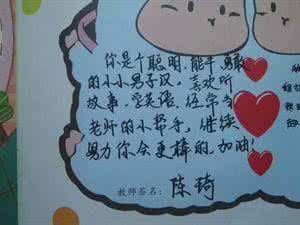 你是个聪明、能干、勇敢
的小小男子汉，喜欢听
故事、学英语，经常当
老师的小帮手，继续
努力你会更棒的，加油！
教师签名：陈琦